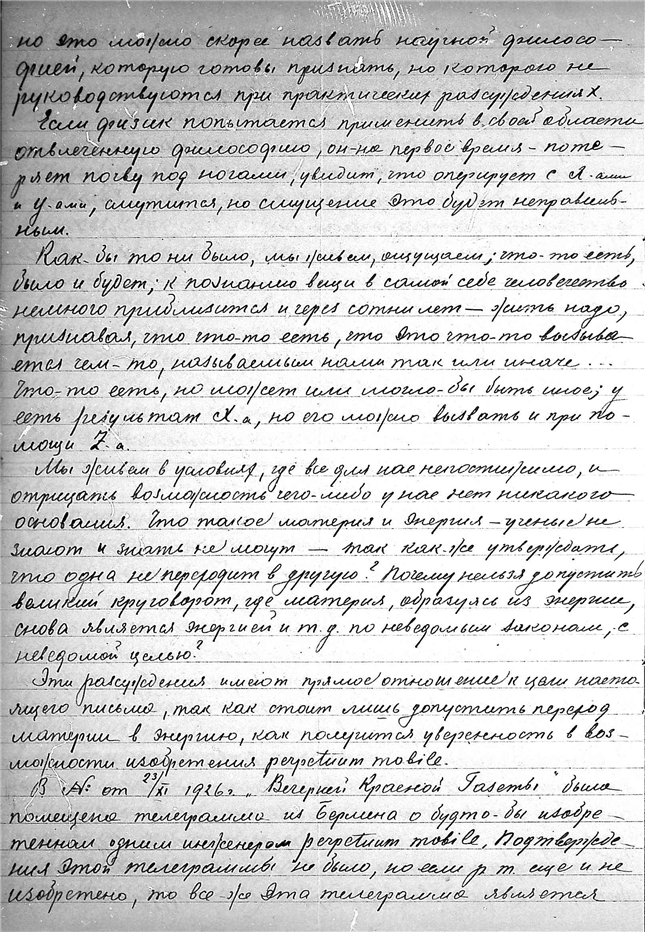 но это можно скорее назвать научной филосо-
фией, которую готовы признать, но которого не
руководствуются при практических разсуждениях.
Если физик попытается применить в своей области
отвлеченную философию, он-на первое время-поте-
ряет почву под ногами, увидит, что оперирует с Х.ами
и У.ами, смутится, но смущение это будет неправиль-
ным.
Как-бы то ни было, мы живем, ощущаем; что-то есть,
было и будет; к познанию вещи в самой себе человечество
немного приблизится и через сотни лет — жить надо,
признавая, что что-то есть, что это что-то вызыва
ется чем-то, называемым нами так или иначе...
Что-то есть, но может или могло-бы быть иное; У
есть результат Х.а, но его можно вызвать и при по-
мощи Z.а.
Мы живем в условиях, где все для нас непостижимо, и
отрицать возможность чего-либо у нас нет никакого
основания. Что такое материя и энергия — ученые не
знают и знать не могут — так как-же утверждать,
что одна не переходит в другую? Почему нельзя допустить
великий круговорот, где материя, образуясь из энергии,
снова является энергией и т.д. по неведомым законам, с
неведомой целью?
Эти разсуждения имеют прямое отношение к цели насто-
ящего письма, так как стоит лишь допустить переход
материи в энергию, как получится уверенность в воз-
можности изобретения perpetuum mobile.
В № от 23/XI 1926г. „Вечерней Красной Газеты" была
помещена телеграмма из Берлина о будто-бы изобре-
тенном одним инженером perpetuum mobile. Подтвержде-
ния этой телеграммы не было, но если р.т. еще и не
изобретено, то все-же эта телеграмма является